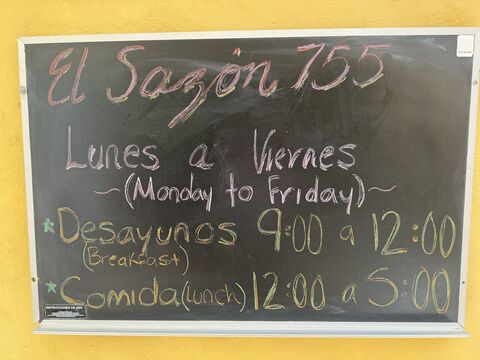 El Sazón 755
Lunes a Viernes
~(Monday to Friday)~
* Desayunos 9:00 a 12:00
(Breakfast)
* Comida (Lunch) 12:00 a 5:00
INSTRUCCIONES DE USO